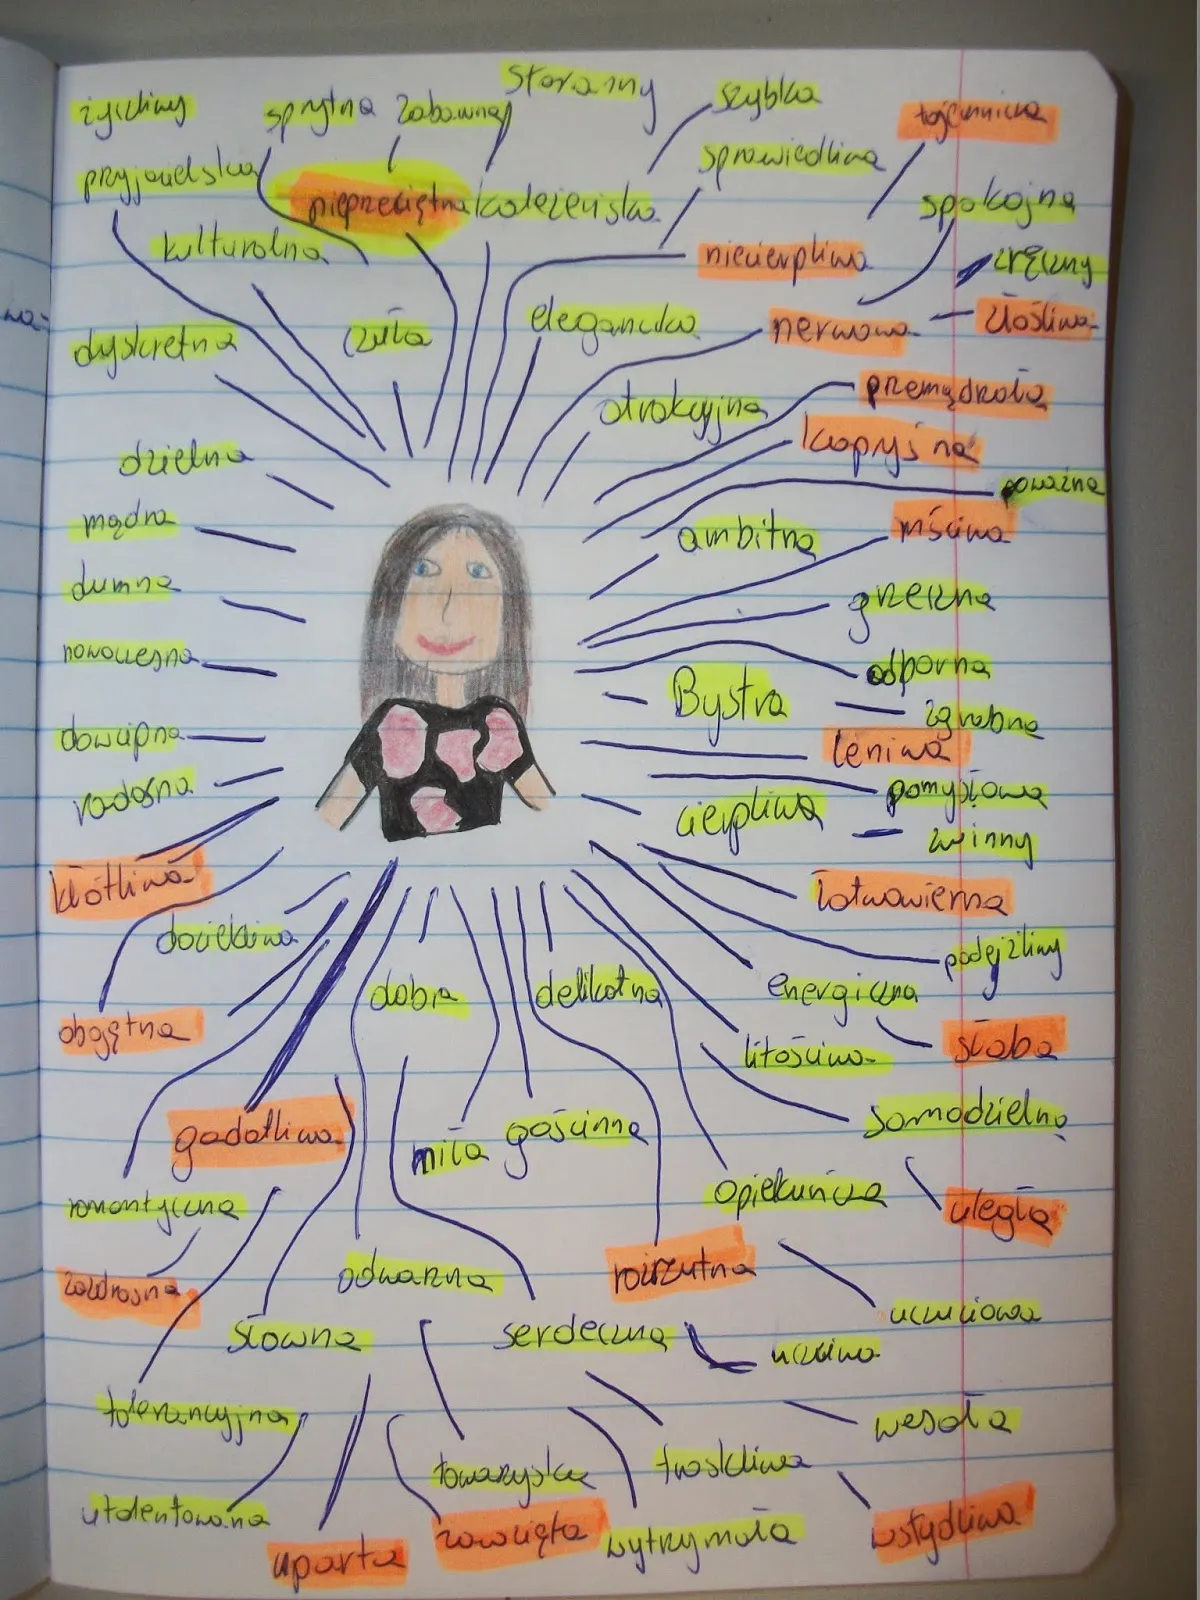 życzliwy
sprytna
zabawna
staranny
szybka
tajemnicza
przyjacielska
nieprzeciętna
koleżeńska
sprawiedliwa
spokojna
kulturalna
niecierpliwa
zręczny
dyskretna
czuła
elegancka
nerwowa
złośliwa
atrakcyjna
przemądrzała
kapryśna
dzielna
poważna
mądra
ambitna
mściwa
dumna
grzeczna
nowoczesna
odporna
Bystra
zgrabna
dowcipna
leniwa
radosna
pomysłowa
cierpliwa
zwinny
kłótliwa
łatwowierna
dociekliwa
podejźliwy
dobra
delikatna
energiczna
obojętna
słaba
litościwa
gadatliwa
miła
gościnna
samodzielna
romantyczna
opiekuńcza
uległa
zazdrosna
odważna
rozrzutna
uczuciowa
słowna
serdeczna
uczciwa
tolerancyjna
wesoła
towarzyska
troskliwa
utalentowana
uparta
zawzięta
wytrzymała
wstydliwa